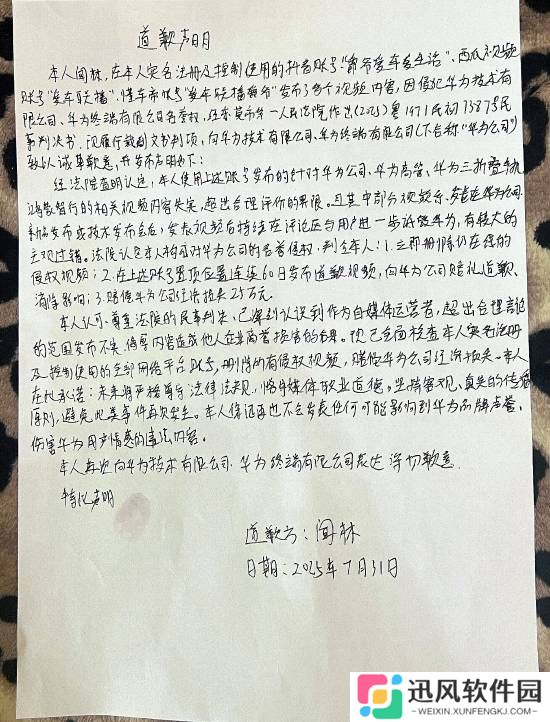 道歉声明
本人闻林，在本人实名注册及控制使用的抖音账号“帮帮爱车爱生活”、西瓜视频
账号“爱车联播”、懂车帝账号“爱车联播”发布了多个视频内容，因侵犯华为技术有
限公司、华为终端有限公司名誉权，经东莞市第一人民法院作出(2025)粤1971民初13875民
事判决书，现履行裁判文书判项，向华为技术有限公司、华为终端有限公司(下合称“华为公司”)
致以诚挚歉意，并发布声明如下：
经法院查明认定，本人使用上述账号发布的针对华为公司、华为高管、华为三折叠手机
及享界暂行的相关视频内容失实，超出合理评价的界限。且其中部分视频系华为公司
新品发布或技术发布会后，发表视频后持续在评论区与用户进一步诋毁华为，有较大的
主观过错。法院认定本人构成对华为公司的名誉侵权，判令本人：1.立即删除仍在线的
侵权视频；2.在上述账号置顶位置连续60日发布道歉视频，向华为公司赔礼道歉、
消除影响；3.赔偿华为公司经济损失25万元。
本人认可、尊重法院的民事判决，已深刻认识到作为自媒体运营者，超出合理言论
的范围发布不实、侮辱内容造成他人企业商誉损害的后果。现已全面核查本人实名注册
及控制使用的全部网络平台账号，删除所有侵权视频，赔偿华为公司经济损失。本人
在此承诺：未来将严格遵守法律法规，恪守媒体职业道德。坚持客观、真实的传播
原则，避免此类事件再次发生。本人保证再也不会发表任何可能影响到华为品牌声誉、
伤害华为用户情感的违法内容。
本人再次向华为技术有限公司、华为终端有限公司表达深切歉意
特此声明
道歉人：闻林
日期：2025年7月31日
迅风软件园
-WEIXIN.XUNFENGKJ.COM-